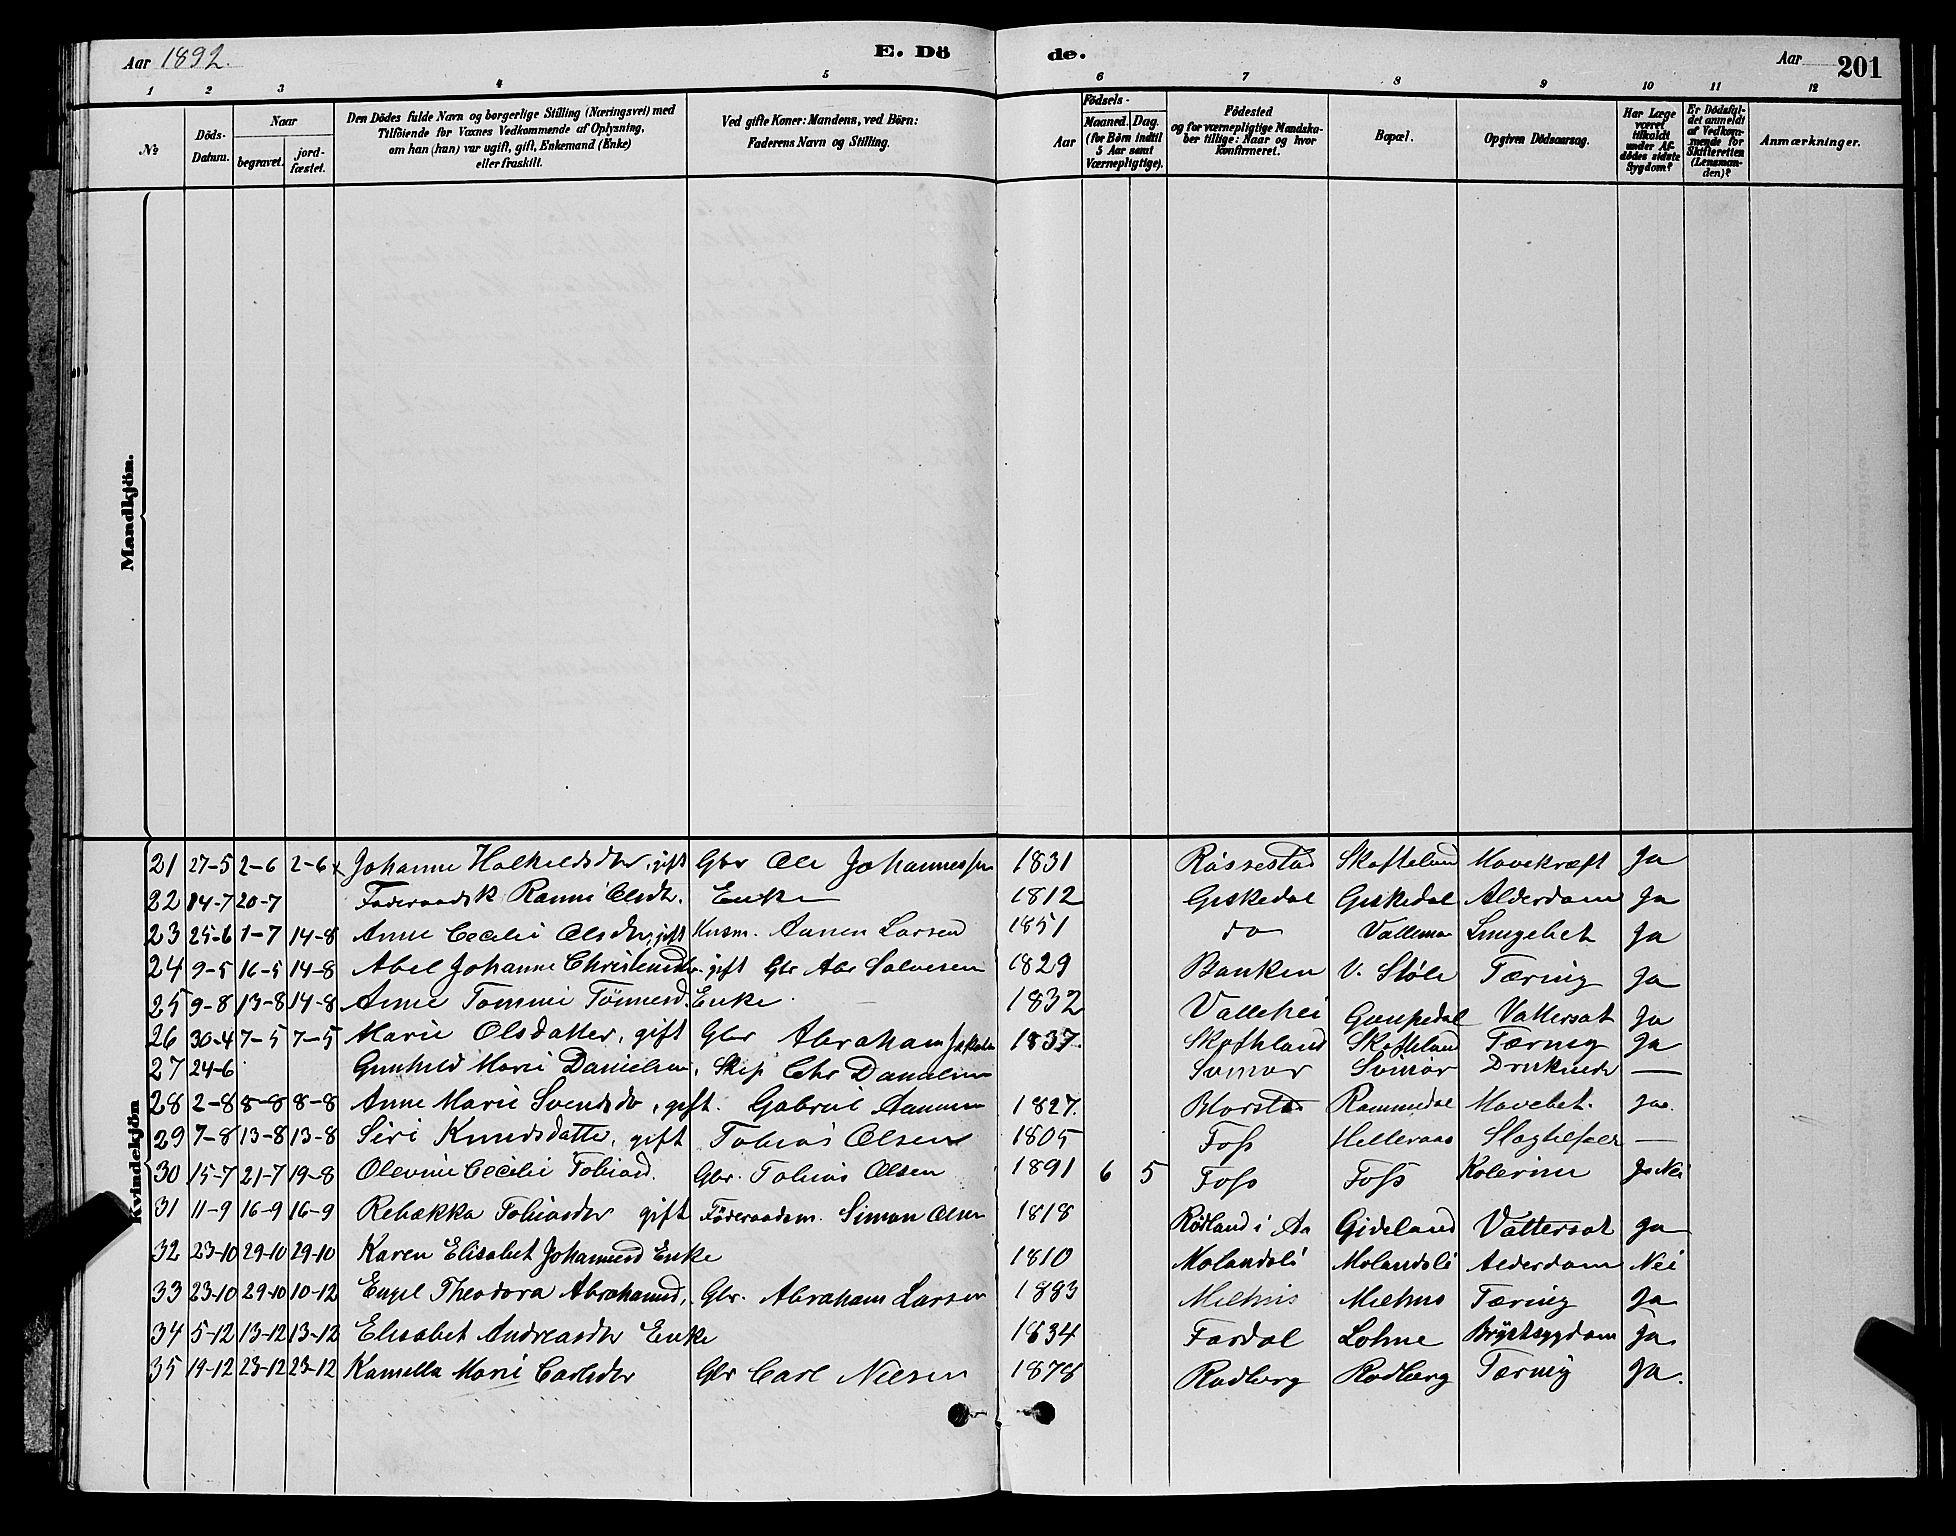 Aar 1892.
E. Dö
de.
Aar
201
1 2 3 4 5 6 7 8 9 10 11 12
№
Döds-Datum.
Naar
begravet.
jord-fæstet.
Den Dödes fulde Navn og borgerlige Stilling (Næringsvei) med
Tilföiende for Voxnes Vedkommende af Oplysning,
om han (hun) var ugift, gift, Enkemand (Enke)
eller fraskilt.
Ved gifte Koner: Mandens, ved Börn:
Faderens Navn og Stilling.
Födsels-
Aar
Maaned. Dag.
(for Börn indtil
5 Aar samt
Værnepligtige).
Födested
og for værnepligtige Mandska-
ber tillige: Naar og hvor
Konfirmeret.
Bopæl.
Opgiven Dödsaarsag.
Har Læge
været
tilkaldt
under Af-
dödes sidste
Sygdom?
Er Dödsfal-
det anmeldt
af Vedkom-
mende for
Skifteretten
(Lensman-
den)?
Anmærkninger.
Mandkjön.
Kvindekjön
21 27-5 2-6 2-6 Johanne Halkeldsdtr, gift Gbr Ole Johannessen 1831 Røssestad Skofteland Mavekræft Ja
22 14-7 20-7 Föderaadsk. Ranni Olsdtr. Enke 1812 Geskedal Geskedal Alderdom Ja
23 25-6 1-7 14-8 Anne Cecilie Olsdtr, gift Husm. Aanen Larsen 1851 do Vallemo Ja
24 9-5 16-5 14-8 Abel Johanne gift Gbr Abr Salvesen 1829 Banken V. Støle Tæring Ja
25 9-8 13-8 14-8 Anne Tomine Tönnesd. Enke 1832 Vallehei Vattersot Ja
26 30-4 7-5 7-5 Marie Olsdatter, gift Gbr Abraham 1837. Skofthland Skofteland Tæring Ja
27 24-6 Gunhild Marie Danielsen, Skip Chr Danielsen Svimor Svimor —
28 2-8 8-8 8-8 Anne Marie Svendsdr, gift. Gabriel Aanensen 1827. Rammedal Ja.
29 7-8 13-8 13-8 Siri Knudsdatter, gift Tobias Olsen 1805 Foss Helleraas —
30 15-7 21-7 19-8 Olevine Cecilie Tobiasd. Gbr. Tobias Olsen 1891 6 5 Foss Foss Kolerine Ja Nei
31 11-9 16-9 16-9 Rebækka Tobiasdtr gift Föderaadsm. Simon Olsen 1818 Rödland i Aa Gideland Vattersot Ja
32 23-10 29-10 29-10 Karen Elisabet Johannesd Enke 1810 Molandsli Molandsli Alderdom Nei
33 23-10 29-10 10-12 Engel Theodora Abrahamsd, Gbr. Abraham Larsen 1883 Tæring Ja
34 5-12 13-12 13-12 Elisabet Andreasdtr Enke 1834 Fardal Lohne Brystsygdom Ja.
35 19-12 23-12 23-12 Kamilla Marie Carlsdtr Gbr Carl Nilsen 1878 Rodberg Rodberg Tæring Ja.